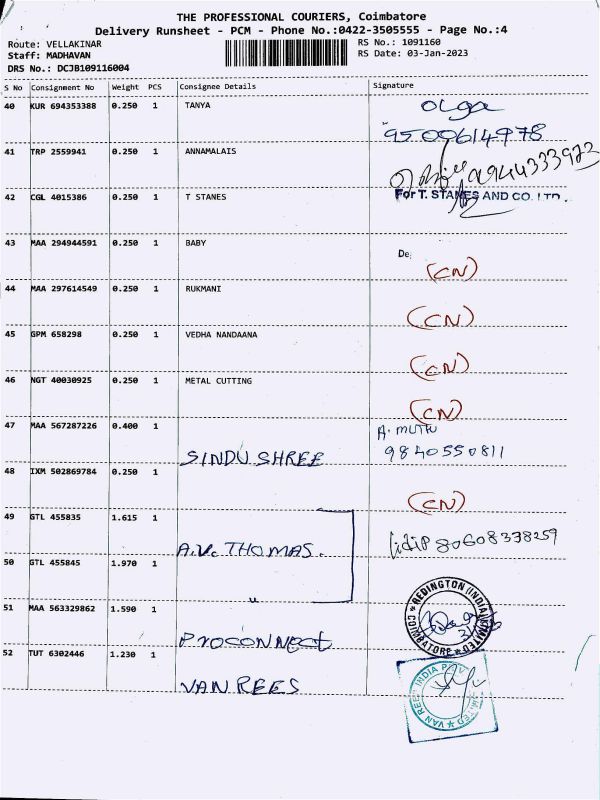 THE PROFESSIONAL COURIERS, Coimbatore
Delivery Runsheet - PCM - Phone No.:0422-3505555 - Page No.:4
Route: VELLAKINAR
Staff: MADHAVAN
DRS No.: DCJB109116004
RS No.: 1091160
RS Date: 03-Jan-2023
S No Consignment No Weight PCS Consignee Details Signature
40 KUR 694353388 0.250 1 TANYA Olga
9500614978
41 TRP 2559941 0.250 1 ANNAMALAIS 9944333973
42 CGL 4015386 0.250 1 T STANES For T. STANES AND CO. LTD.,
43 MAA 294944591 0.250 1 BABY De (CN)
44 MAA 297614549 0.250 1 RUKMANI (CN)
45 GPM 658298 0.250 1 VEDHA NANDAANA (CN)
46 NGT 40030925 0.250 1 METAL CUTTING (CN)
47 MAA 567287226 0.400 1 A. MUTHU
SINDU SHREE 9840550811
48 IXM 502869784 0.250 1 (CN)
49 GTL 455835 1.615 1
A.V. THOMAS. 80608378259
50 GTL 455845 1.970 1
"
51 MAA 563329862 1.590 1 REDINGTON (INDIA) LIMITED COIMBATORE
PROCONNECT
52 TUT 6302446 1.230 1
VAN REES VAN REES INDIA PRIVATE LIMITED